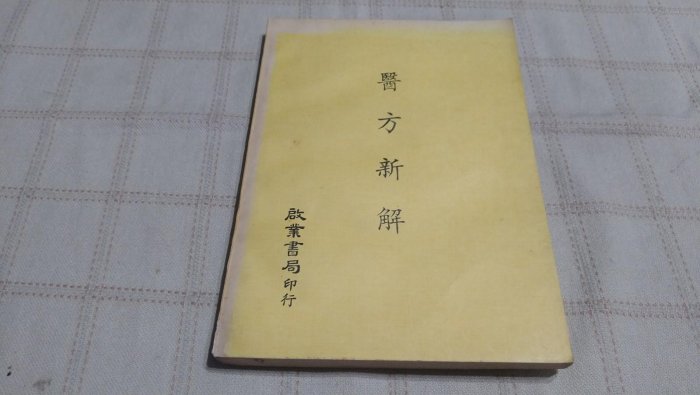 醫方新解
啟業書局印行